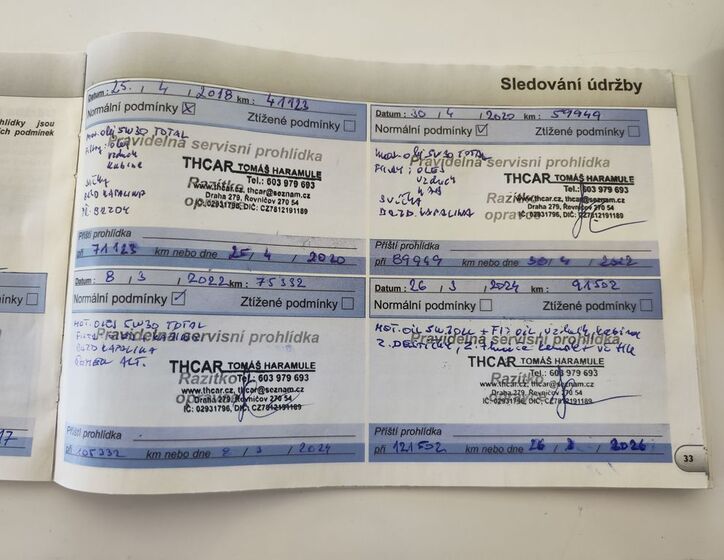 hlídky jsou
ch podmínek
ínky
17
Sledování údržby
Datum : 25. / 4 / 2018 km : 41123
Normální podmínky Ztížené podmínky
Pravidelná servisní prohlídka
Mot. olej 5W30 TOTAL
Filtry: olej
vzduch
kabina
SVÍČKY
BRZD KAPALINA
Razítko
THCAR TOMÁŠ HARAMULE
Tel.: 603 979 693
www.thcar.cz, thcar@seznam.cz
Draha 279, Řevničov 270 54
IČ: 02931796, DIČ: CZ7812191189
Příští prohlídka
při 71123 km nebo dne 25 / 4 / 2020
Datum : 30 / 4 / 2020 km : 59949
Normální podmínky Ztížené podmínky
Pravidelná servisní prohlídka
Mot. olej 5W30 TOTAL
FILTRY: OLEJ
VZDUCH
SVÍČKA
BRZD. KAPALINA
Razítko
opravce
THCAR TOMÁŠ HARAMULE
Tel.: 603 979 693
www.thcar.cz, thcar@seznam.cz
Draha 279, Řevničov 270 54
IČ: 02931796, DIČ: CZ7812191189
Příští prohlídka
při 89949 km nebo dne 30 / 4 /
Datum : 8 / 3 / 2022 km : 75332
Normální podmínky Ztížené podmínky
Pravidelná servisní prohlídka
MOT. OLEJ 5W30 TOTAL
BRZD KAPALINA
ŘEMEN ALT.
Razítko
THCAR TOMÁŠ HARAMULE
Tel.: 603 979 693
www.thcar.cz, thcar@seznam.cz
Draha 279, Řevničov 270 54
IČ: 02931796, DIČ: CZ7812191189
Příští prohlídka
při 105332 km nebo dne 8 / 3 / 2024
Datum : 26 / 3 / 2024 km : 91502
Normální podmínky Ztížené podmínky
Pravidelná servisní prohlídka
Razítko
THCAR TOMÁŠ HARAMULE
Tel.: 603 979 693
www.thcar.cz, thcar@seznam.cz
Draha 279, Řevničov 270 54
IČ: 02931796, DIČ: CZ7812191189
Příští prohlídka
při 121502 km nebo dne 26 / 3 / 2026
33